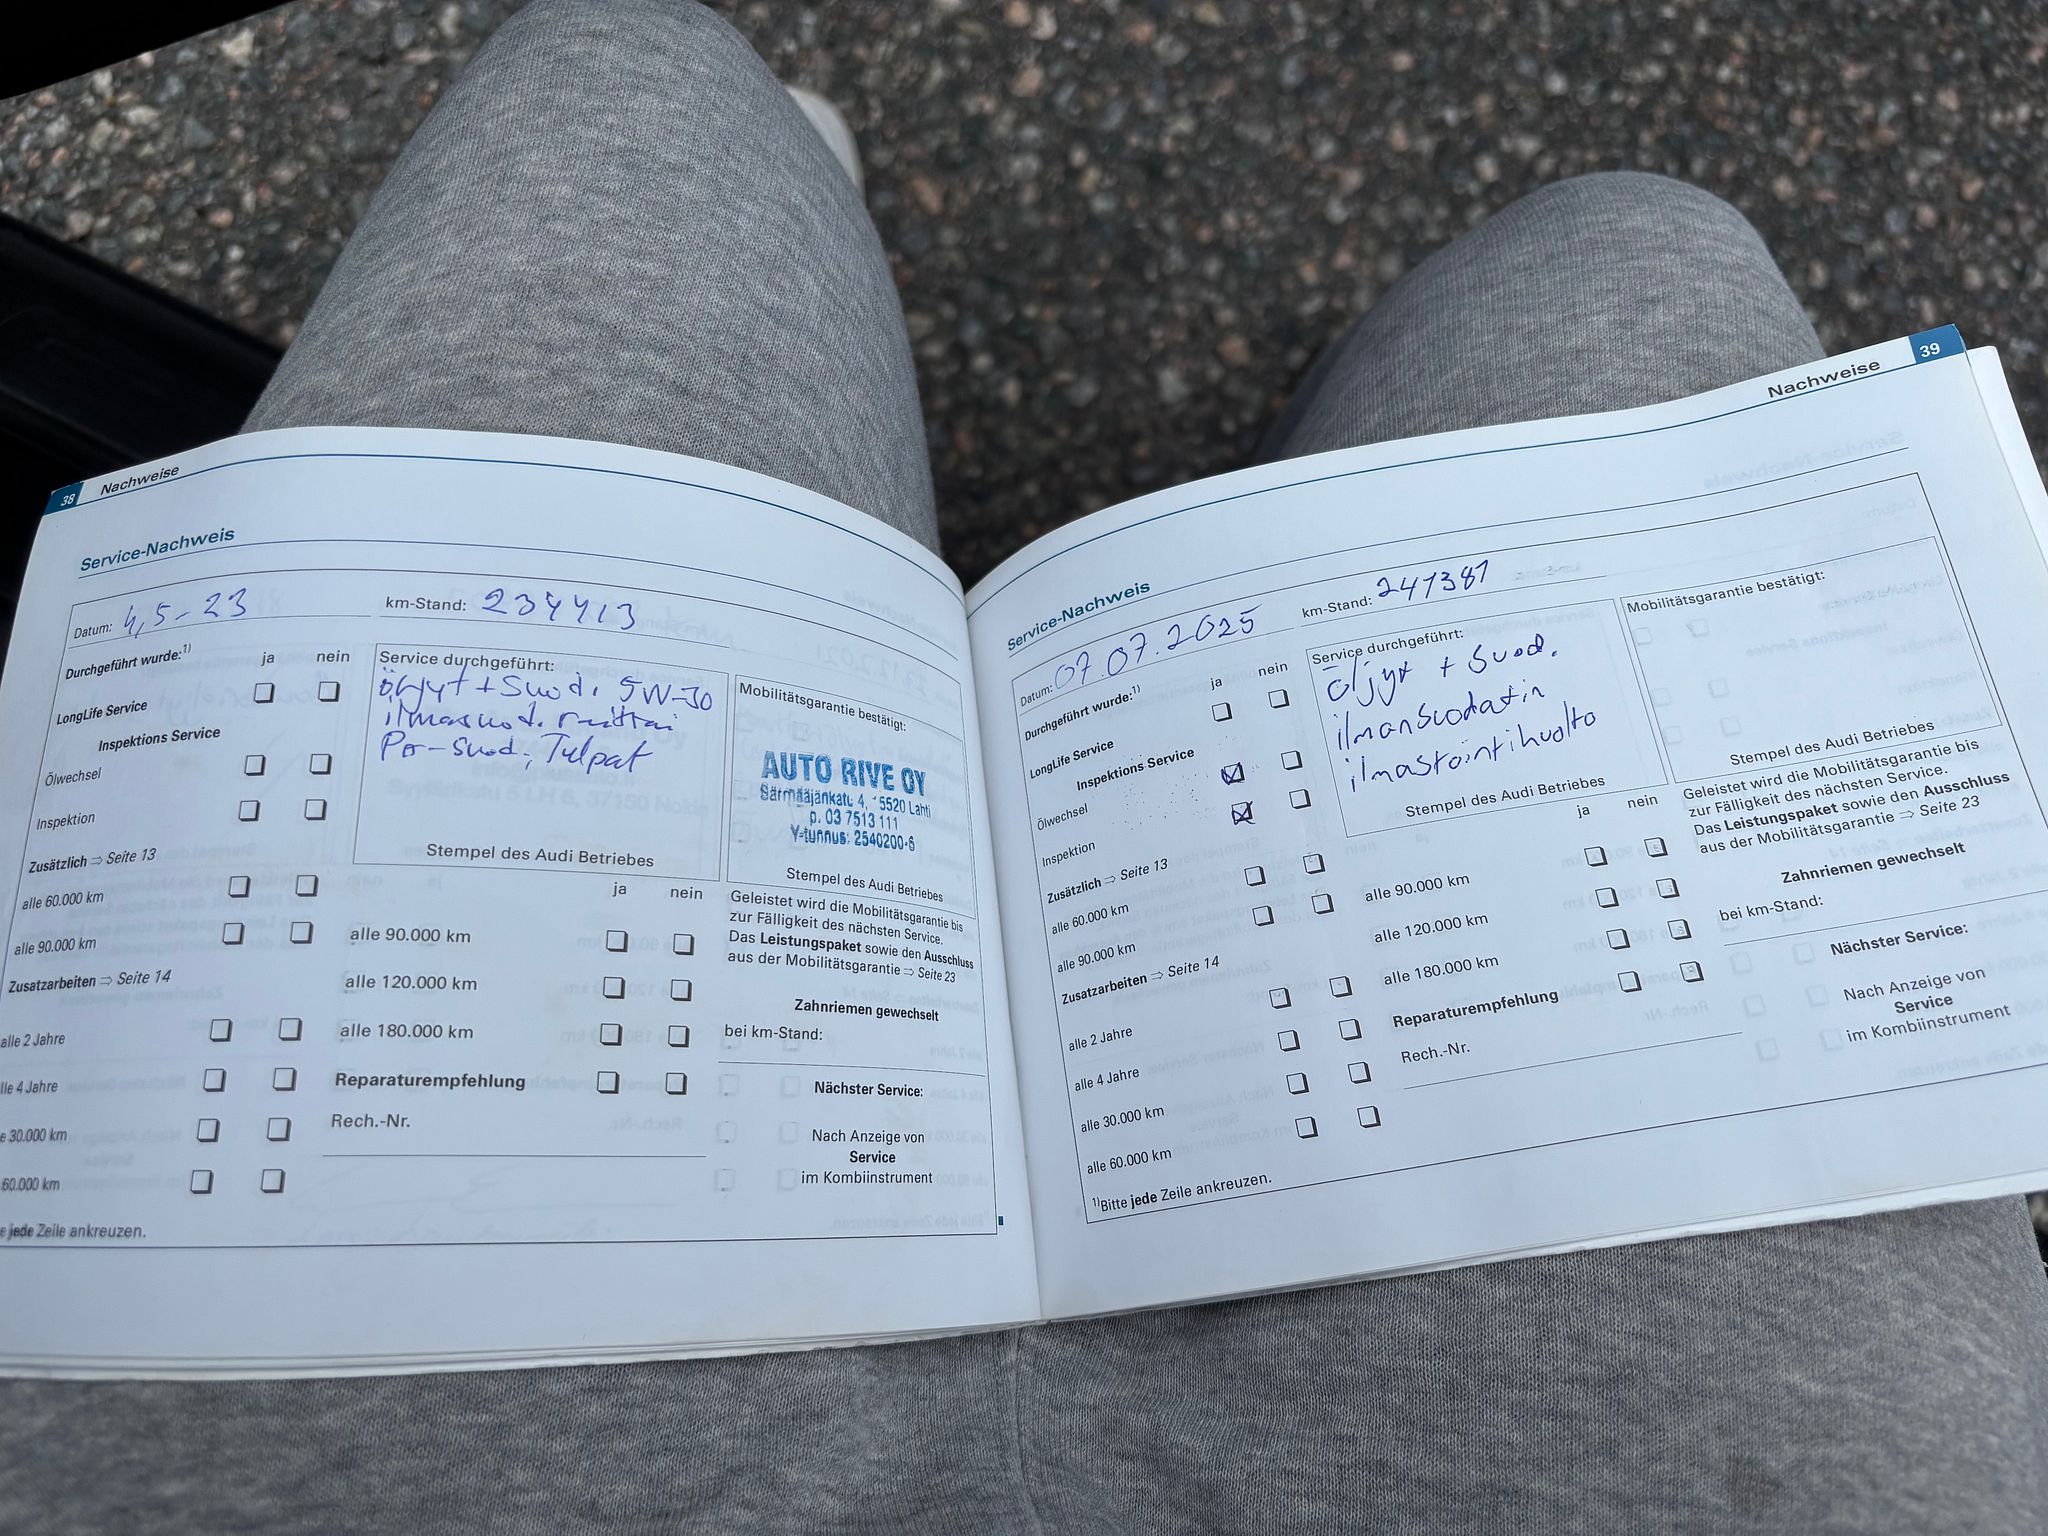 38 Nachweise
Service-Nachweis
Datum: 4,5-23
km-Stand: 234413
Durchgeführt wurde:¹⁾ ja nein
LongLife Service
Inspektions Service
Ölwechsel
Inspektion
Zusätzlich ⇒ Seite 13
alle 60.000 km
alle 90.000 km
Zusatzarbeiten ⇒ Seite 14
alle 2 Jahre
lle 4 Jahre
e 30.000 km
60.000 km
e jede Zeile ankreuzen.
Service durchgeführt:
öljyt + Suod. 5W-30
ilmasuod.
Pa-suod; Tulpat
Stempel des Audi Betriebes
ja nein
alle 90.000 km
alle 120.000 km
alle 180.000 km
Reparaturempfehlung
Rech.-Nr.
Mobilitätsgarantie bestätigt:
AUTO RIVE OY
Särmääjänkatu 4, 15520 Lahti
p. 03 7513 111
Y-tunnus: 2540200-6
Stempel des Audi Betriebes
Geleistet wird die Mobilitätsgarantie bis
zur Fälligkeit des nächsten Service.
Das Leistungspaket sowie den Ausschluss
aus der Mobilitätsgarantie ⇒ Seite 23
Zahnriemen gewechselt
bei km-Stand:
Nächster Service:
Nach Anzeige von
Service
im Kombiinstrument
Nachweise 39
Service-Nachweis
Datum: 07.07.2025
km-Stand: 241381
Durchgeführt wurde:¹⁾ ja nein
LongLife Service
Inspektions Service
Ölwechsel
Inspektion
Zusätzlich ⇒ Seite 13
alle 60.000 km
alle 90.000 km
Zusatzarbeiten ⇒ Seite 14
alle 2 Jahre
alle 4 Jahre
alle 30.000 km
alle 60.000 km
¹⁾Bitte jede Zeile ankreuzen.
Service durchgeführt:
öljyt + Suod.
ilmansuodatin
ilmastointihuolto
Stempel des Audi Betriebes
ja nein
alle 90.000 km
alle 120.000 km
alle 180.000 km
Reparaturempfehlung
Rech.-Nr.
Mobilitätsgarantie bestätigt:
Stempel des Audi Betriebes
Geleistet wird die Mobilitätsgarantie bis
zur Fälligkeit des nächsten Service.
Das Leistungspaket sowie den Ausschluss
aus der Mobilitätsgarantie ⇒ Seite 23
Zahnriemen gewechselt
bei km-Stand:
Nächster Service:
Nach Anzeige von
Service
im Kombiinstrument